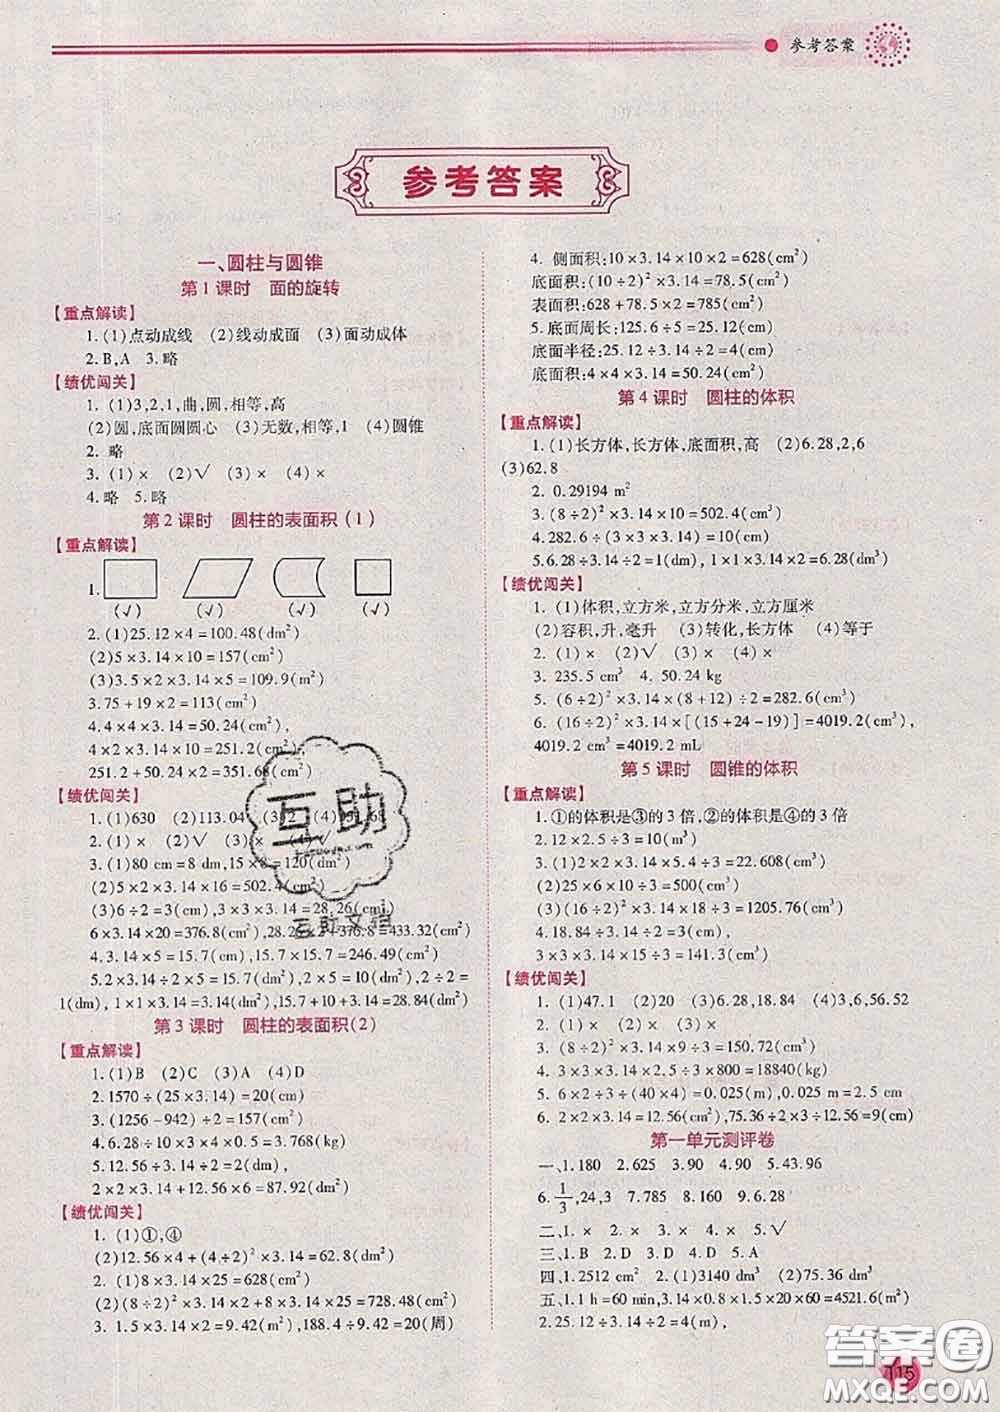 参考答案
参考答案
一、圆柱与圆锥
第1课时 面的旋转
【重点解读】
1.(1)点动成线 (2)线动成面 (3)面动成体
2.B,A 3.略
【绩优闯关】
1. (1)3,2,1,曲,圆,相等,高
(2)圆,底面圆圆心 (3)无数,相等,1 (4)圆锥
2. 略
3. (1)× (2)√ (3)× (4)×
4.略 5.略
第2课时 圆柱的表面积(1)
【重点解读】
1.
(√) (√) (√) (√)
2.(1)25.12×4=100.48(dm²)
(2)5×3.14×10=157(cm²)
(3)3.5×2×3.14×5=109.9(m²)
3.75+19×2=113(cm²)
4.4×4×3.14=50.24(cm²),
4×2×3.14×10=251.2(cm²),
251.2+50.24×2=351.68(cm²)
【绩优闯关】
1.(1)630 (2)113.04
2.(1)× (2)√ (3)× (4)×
3.(1)80 cm=8 dm,15×8=120(dm²)
(2)2×3.14×5×16=502.4(cm²)
(3)6÷2=3(cm),3×3×3.14=28.26(cm²)
6×3.14×20=376.8(cm²),28.26×2+376.8=433.32(cm²)
4.3.14×5=15.7(cm),15.7×15.7=246.49(cm²)
5.2×3.14÷2×5=15.7(dm²),2×5=10(dm²),2÷2=
1(dm),1×1×3.14=3.14(dm²),15.7+10+3.14=28.84(dm²)
第3课时 圆柱的表面积(2)
【重点解读】
1.(1)B (2)C (3)A (4)D
2.1570÷(25×3.14)=20(cm)
3.(1256-942)÷2=157(cm²)
4.6.28÷10×3×4×0.5=3.768(kg)
5.12.56÷3.14÷2=2(dm),
2×2×3.14+12.56×6=87.92(dm²)
【绩优闯关】
1. (1)①,④
(2)12.56×4+(4÷2)²×3.14=62.8(dm²)
2. (1)8×3.14×25=628(cm²)
(2)(8÷2)²×3.14×2+8×3.14×25=728.48(cm²)
3. 1.5×3.14×2=9.42(m),188.4÷9.42=20(周)
4. 侧面积:10×3.14×10×2=628(cm²)
底面积:(10÷2)²×3.14=78.5(cm²)
表面积:628+78.5×2=785(cm²)
5.底面周长:125.6÷5=25.12(cm)
底面半径:25.12÷3.14÷2=4(cm)
底面积:4×4×3.14=50.24(cm²)
第4课时 圆柱的体积
【重点解读】
1.(1)长方体,长方体,底面积,高 (2)6.28,2,6
(3)62.8
2. 0.29194 m²
3.(8÷2)²×3.14×10=502.4(cm³)
4.282.6÷(3×3×3.14)=10(cm)
5.6.28÷3.14÷2=1(dm),1×1×3.14×2=6.28(dm³)
【绩优闯关】
1. (1)体积,立方米,立方分米,立方厘米
(2)容积,升,毫升 (3)转化,长方体 (4)等于
2. (1)× (2)√ (3)× (4)×
3. 235.5 cm³ 4. 50.24 kg
5. (6÷2)²×3.14×(8+12)÷2=282.6(cm³)
6. (16÷2)²×3.14×[(15+24-19)]=4019.2(cm³),
4019.2 cm³=4019.2 mL
第5课时 圆锥的体积
【重点解读】
1.①的体积是③的3倍,②的体积是④的3倍
2.12×2.5÷3=10(m³)
3.(1)2×2×3.14×5.4÷3=22.608(cm³)
(2)125×12÷3=500(cm³)
(3)(16÷2)²×3.14×18÷3=1205.76(cm³)
4.18.84÷3.14÷2=3(cm),
3×3×3.14×15÷3=141.3(cm³)
【绩优闯关】
1. (1)47.1 (2)20 (3)6.28,18.84 (4)3,6,56.52
2. (1)× (2)√ (3)× (4)×
3. (8÷2)²×3.14×9÷3=150.72(cm³)
4. 3×3×3.14×2.5÷3×800=18840(kg)
5. 6×2÷3÷(40×4)=0.025(m),0.025 m=2.5 cm
6. 2×2×3.14=12.56(cm²),75.36÷2×3÷12.56=9(cm)
第一单元测评卷
一、1.180 2.625 3.90 4.90 5.43.96
6.1/3,24,3 7.785 8.160 9.6.28
二、1.× 2.× 3.× 4.× 5.√
三、1.B 2.D 3.B 4.D 5.A
四、1.2512 cm² 2.(1)3140 dm³ (2)75.36 dm³
五、1.1 h=60 min,3.14×0.8×1.5×20×60=4521.6(m²)
2.25.12÷3.14÷2=4(m),
互助
答案圈
MXQE.COM
115